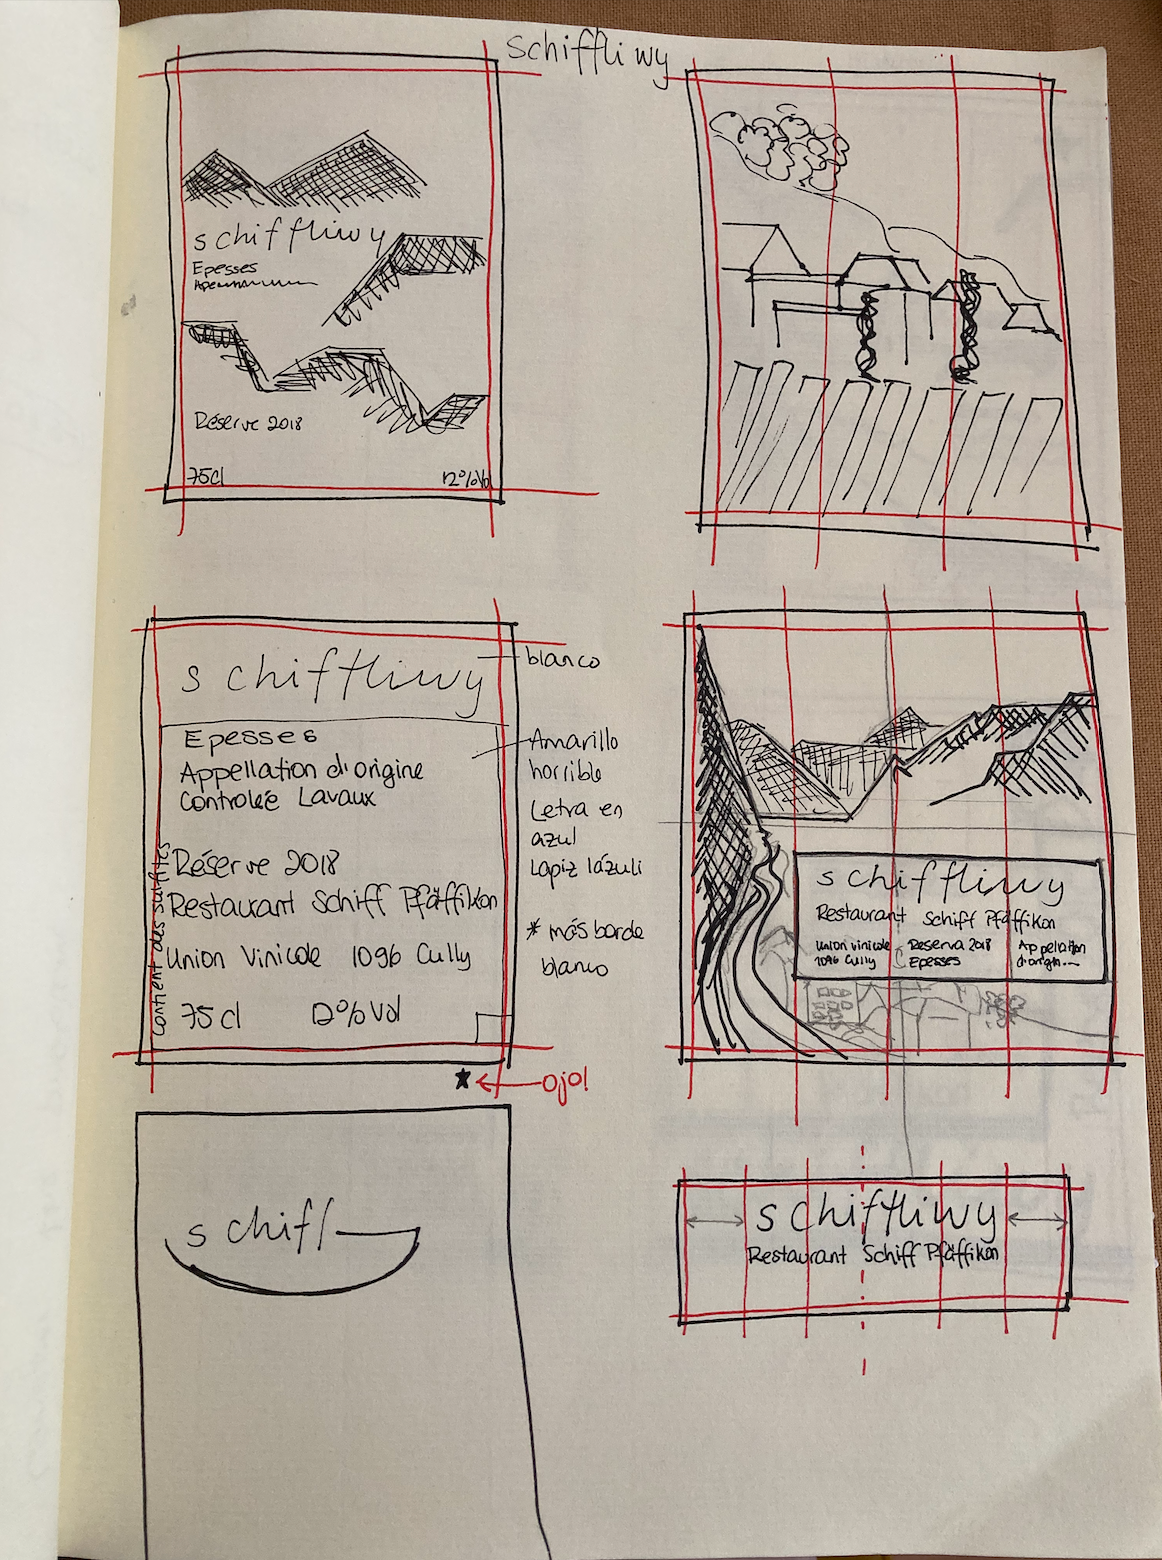 schiffliwy
schiffliwy
Epesses
Réserve 2018
75cl 12%Vol
schiffliwy
Epesses
Appellation d'origine
Contrôlée Lavaux
Réserve 2018
Restaurant Schiff Pfäffikon
Union Vinicole 1096 Cully
75 cl 12% Vol
Contient des sulfites
blanco
Amarillo
horrible
Letra en
azul
Lapiz lázuli
* más borde
blanco
★ ← ojo!
schiffliwy
Restaurant Schiff Pfäffikon
Union vinicole Reserva 2018 Appellation
1096 Cully Epesses d'origin
schiff
schiffliwy
Restaurant Schiff Pfäffikon